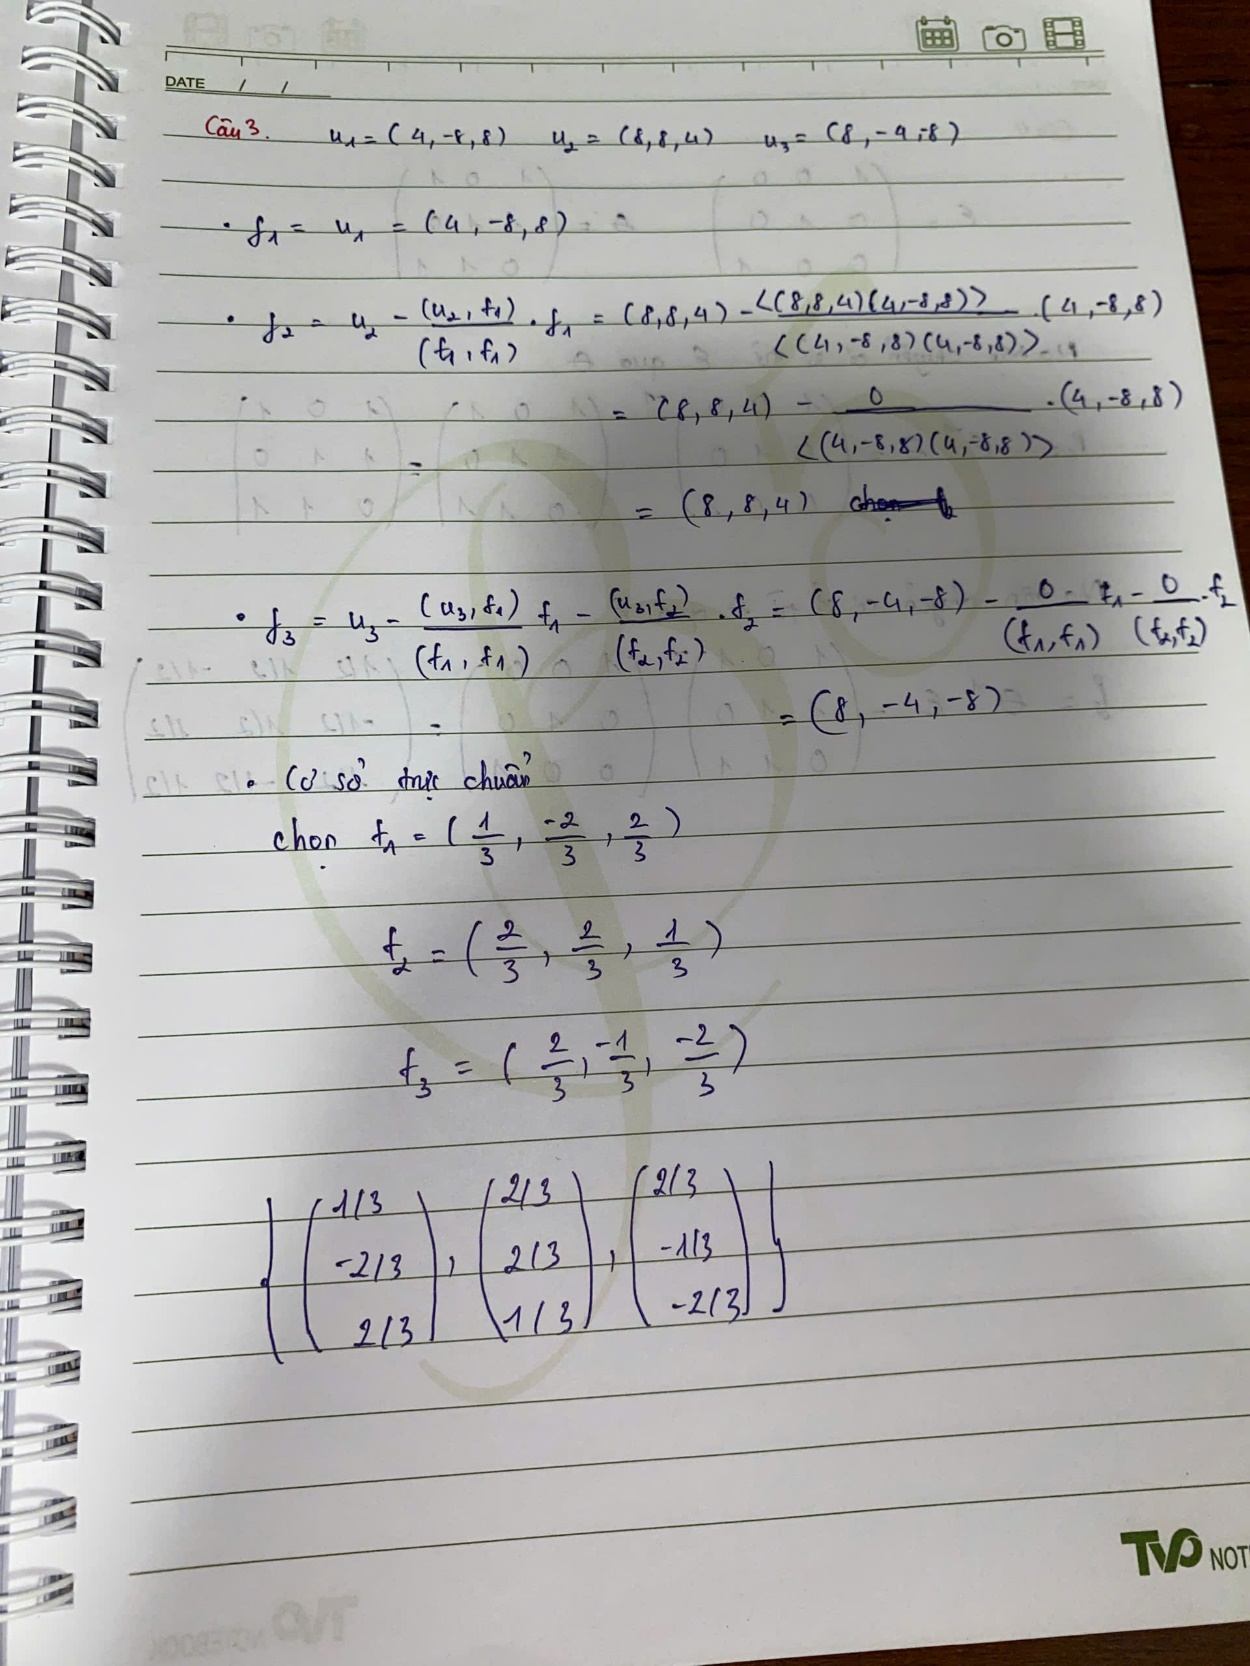 DATE / /
Câu 3. u₁ = (4, -8, 8) u₂ = (8, 8, 4) u₃ = (8, -4, -8)
• f₁ = u₁ = (4, -8, 8)
• f₂ = u₂ - (u₂, f₁)/(f₁, f₁) . f₁ = (8, 8, 4) - <(8, 8, 4)(4, -8, 8)>/<(4, -8, 8)(4, -8, 8)> . (4, -8, 8)
= (8, 8, 4) - 0/<(4, -8, 8)(4, -8, 8)> . (4, -8, 8)
= (8, 8, 4)
• f₃ = u₃ - (u₃, f₁)/(f₁, f₁) f₁ - (u₃, f₂)/(f₂, f₂) . f₂ = (8, -4, -8) - 0/(f₁, f₁) f₁ - 0/(f₂, f₂) . f₂
= (8, -4, -8)
• Cơ sở trực chuẩn
chọn f₁ = (1/3, -2/3, 2/3)
f₂ = (2/3, 2/3, 1/3)
f₃ = (2/3, -1/3, -2/3)
1/3 2/3 2/3
-2/3 , 2/3 , -1/3
2/3 1/3 -2/3
TVP NOT